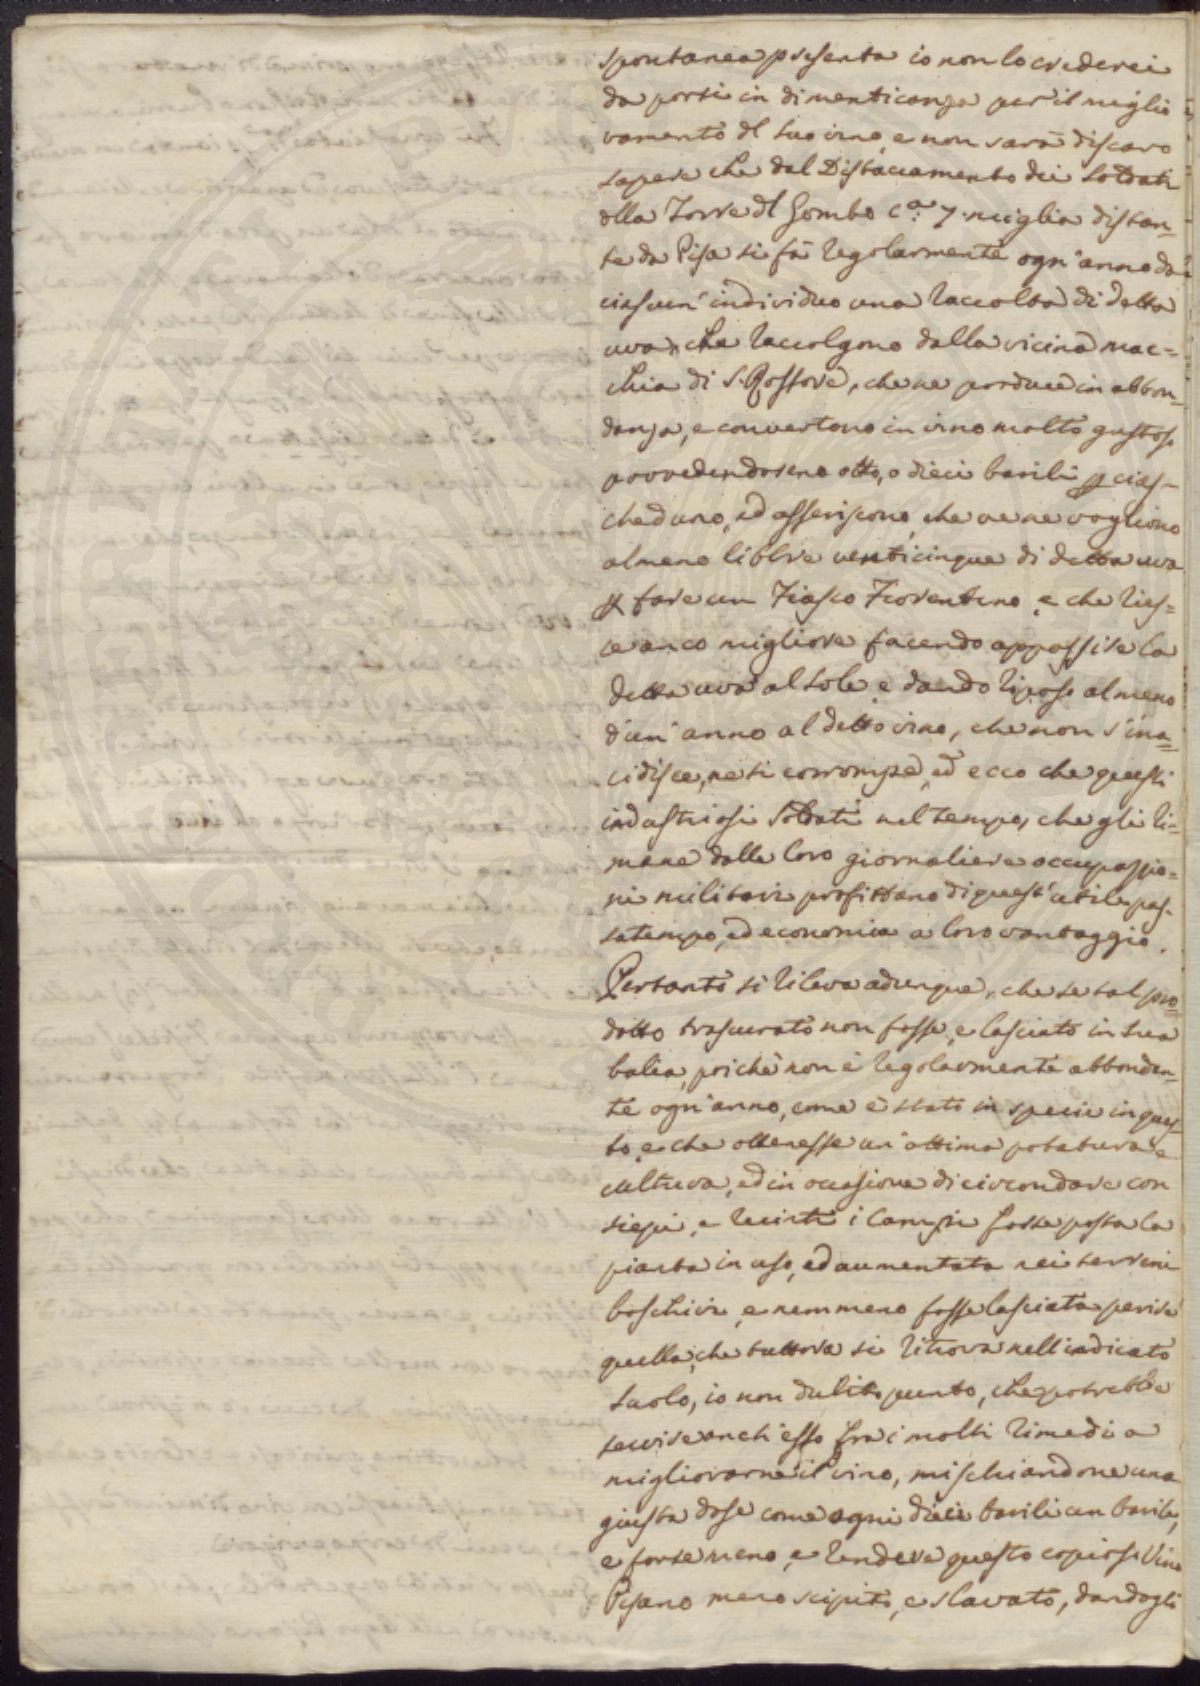 spontanea presenta io non lo crederei
da porsi in dimenticanza per il miglio
ramento dl suo vino, e non sarà discaro
sapere che dal Distaccamento dei Soldati
dlla Torre dl Gombo c.ª 7. miglia distan=
te da Pisa si fà regolarmente ogn'anno da
ciascun' individuo una raccolta di detta
uva, che raccolgono dalla vicina mac=
chia di S. Rossore, che ne produce in abbon=
danza, e convertono in vino molto gustoso
provvedendosene otto, o dieci barili p cias=
cheduno, ed asseriscono, che ve ne vogliono
almeno libbre venticinque di detta uva
p fare un Fiasco Fiorentino, e che ries=
ce anco migliore facendo appassire la
detta uva al sole, e dando riposo almeno
d'un' anno al detto vino, che non s'ina=
cidisce, ne si corrompe, ed ecco che questi
industriosi Soldati nel tempo, che gli ri=
mane dalle loro giornaliere occupazio=
ni militari profittano di quest' utile pas=
satempo, ed economia a loro vantaggio.
Pertanto si rileva adunque, che se tal pro=
dotto trascurato non fosse, e lasciato in sua
balia, poichè non è regolarmente abbondan=
te ogn'anno, come è stato in specie in ques=
to, e che ottenesse un' ottima potatura e
cultura, ed in occasione di circondare con
siepi, e recinti i Campi fosse posta la
pianta in uso, ed aumentata nei terreni
boschivi, e nemmeno fosse lasciata perire
quella, che tuttora si ritrova nell'indicato
suolo, io non dubito punto, che potrebbe
servire anch'esso fra i molti rimedi a
migliorarne il vino, mischiandone una
giusta dose come ogni dieci barili un barile,
e forse meno, e rendere questo copioso Vino
Pisano meno scipito, e slavato, dandogli